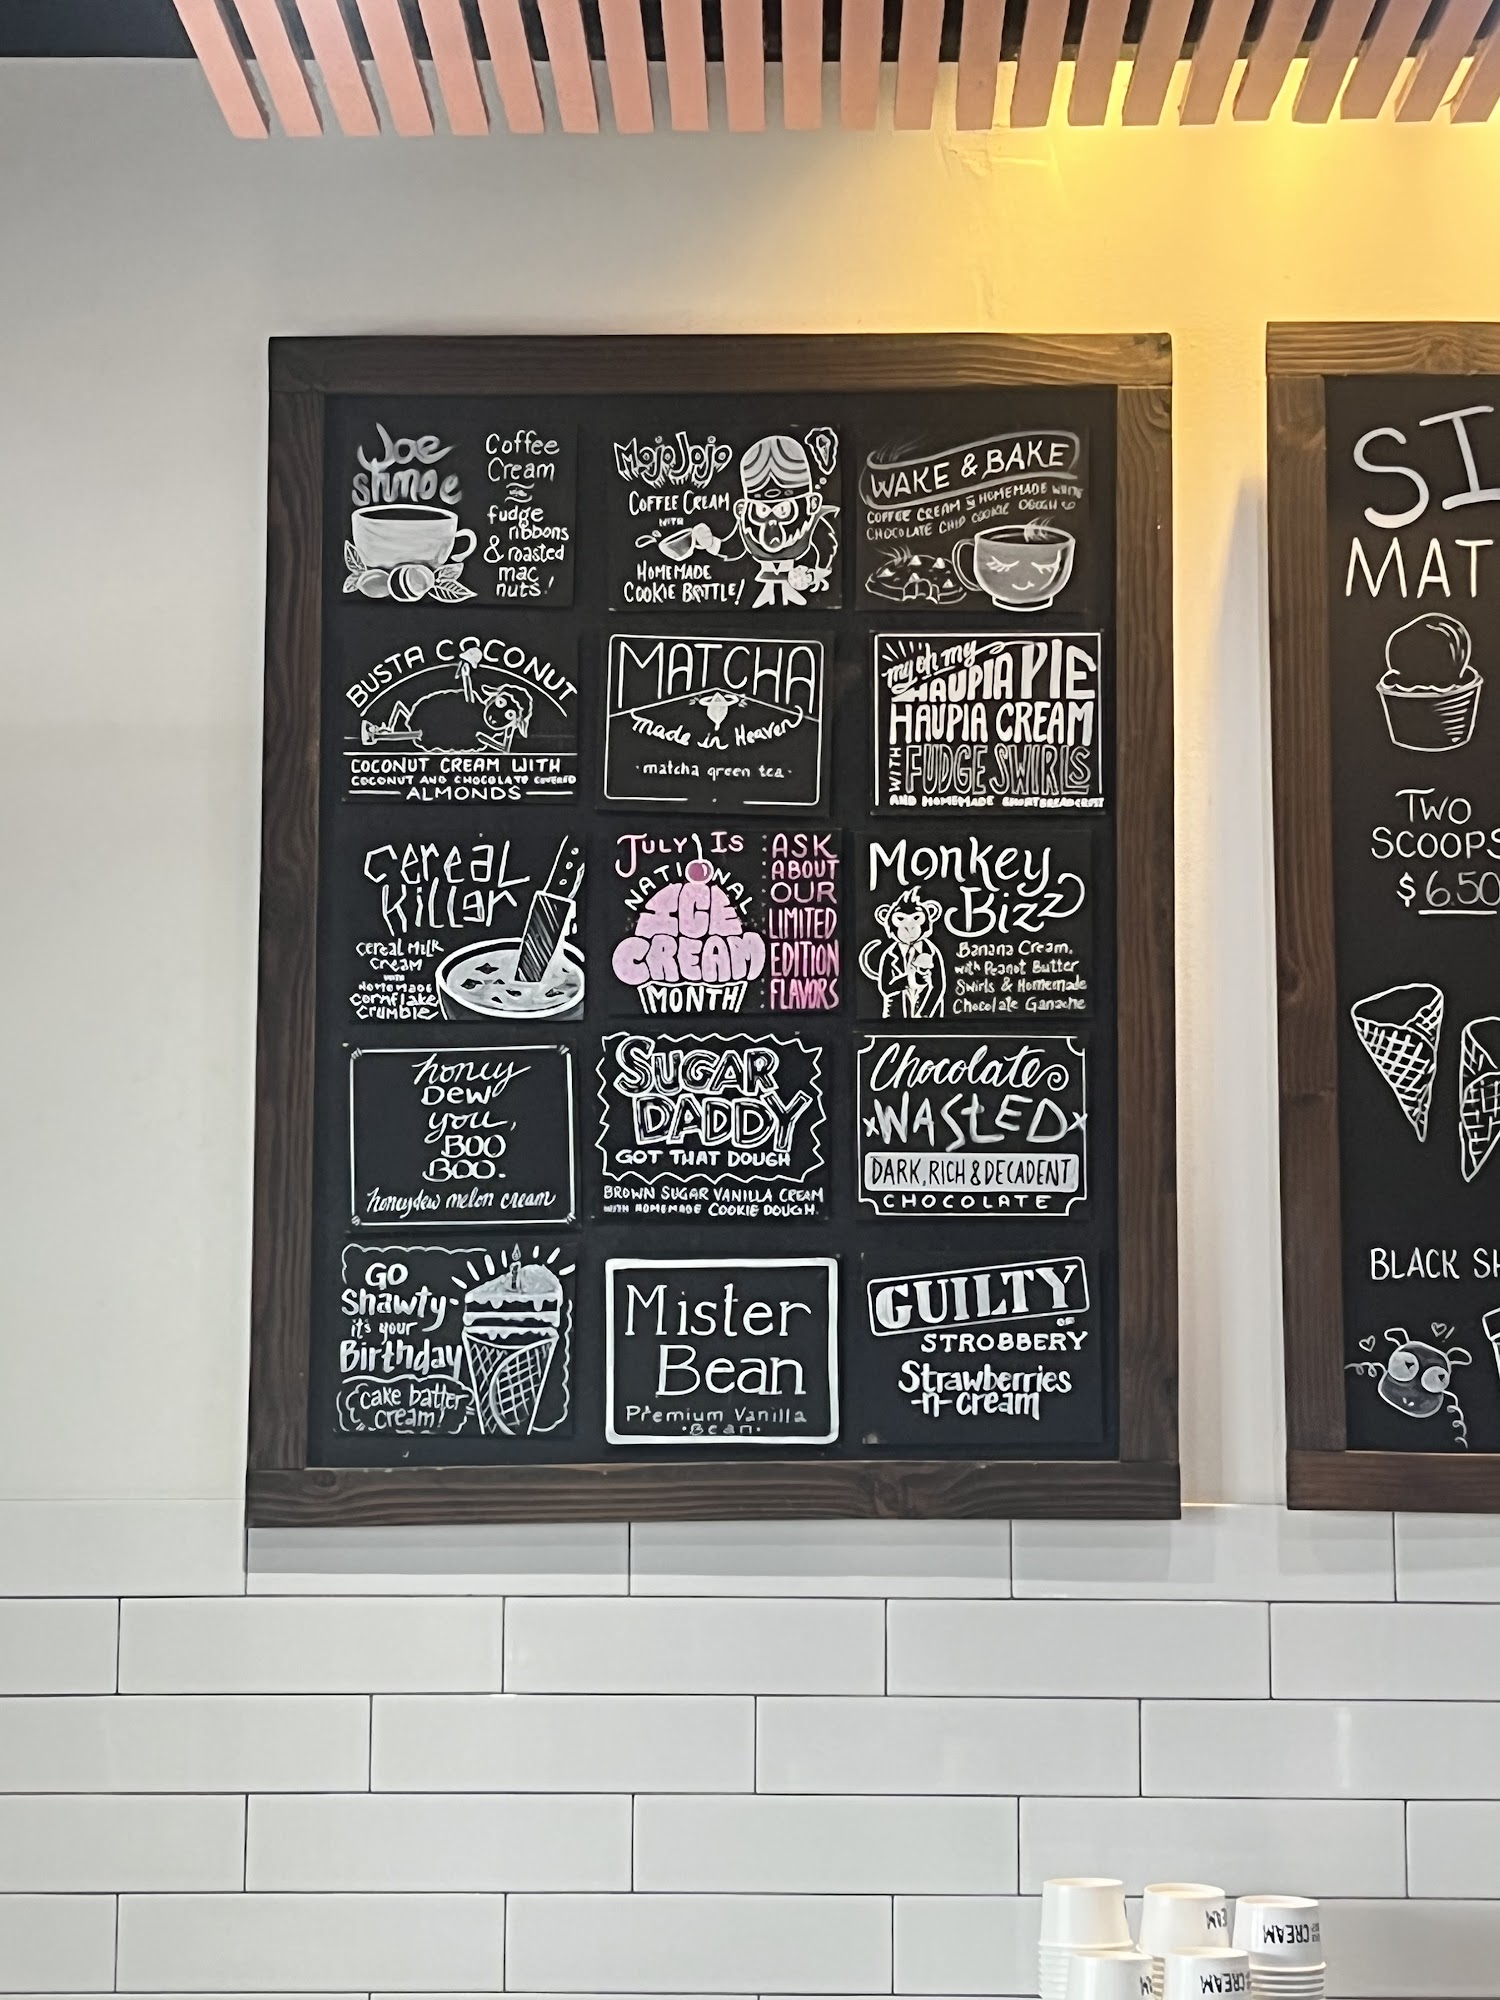 Joe
Shmoe
Coffee
Cream
fudge
ribbons
& roasted
mac
nuts!
MojoJojo
COFFEE CREAM
WITH
HOMEMADE
COOKIE BRITTLE!
WAKE & BAKE
COFFEE CREAM HOMEMADE WHITE
CHOCOLATE CHIP COOKIE DOUGH
BUSTA COCONUT
COCONUT CREAM WITH
COCONUT AND CHOCOLATE COVERED
ALMONDS
MATCHA
made in Heaven
matcha green tea
my oh my
HAUPIA PIE
HAUPIA CREAM
WITH FUDGE SWIRLS
AND HOMEMADE SHORTBREAD CRUST
Cereal
Killer
cereal milk
cream
WITH
HOMEMADE
Cornflake
crumble
JULY IS
NATIONAL
ICE
CREAM
MONTH
ASK
ABOUT
OUR
LIMITED
EDITION
FLAVORS
Monkey
Bizz
Banana Cream,
with Peanut Butter
Swirls & Homemade
Chocolate Ganache
honey
DEW
you,
BOO
BOO.
honeydew melon cream
SUGAR
DADDY
GOT THAT DOUGH
BROWN SUGAR VANILLA CREAM
WITH HOMEMADE COOKIE DOUGH.
Chocolate
xWASTEDx
DARK, RICH & DECADENT
CHOCOLATE
GO
Shawty-
it's your
Birthday
cake batter
cream!
Mister
Bean
Premium Vanilla
·Bean·
GUILTY
OF
STROBBERY
Strawberries
-n-cream
SI
MAT
TWO
SCOOPS
$6.50
BLACK SH
CREAM
CREAM